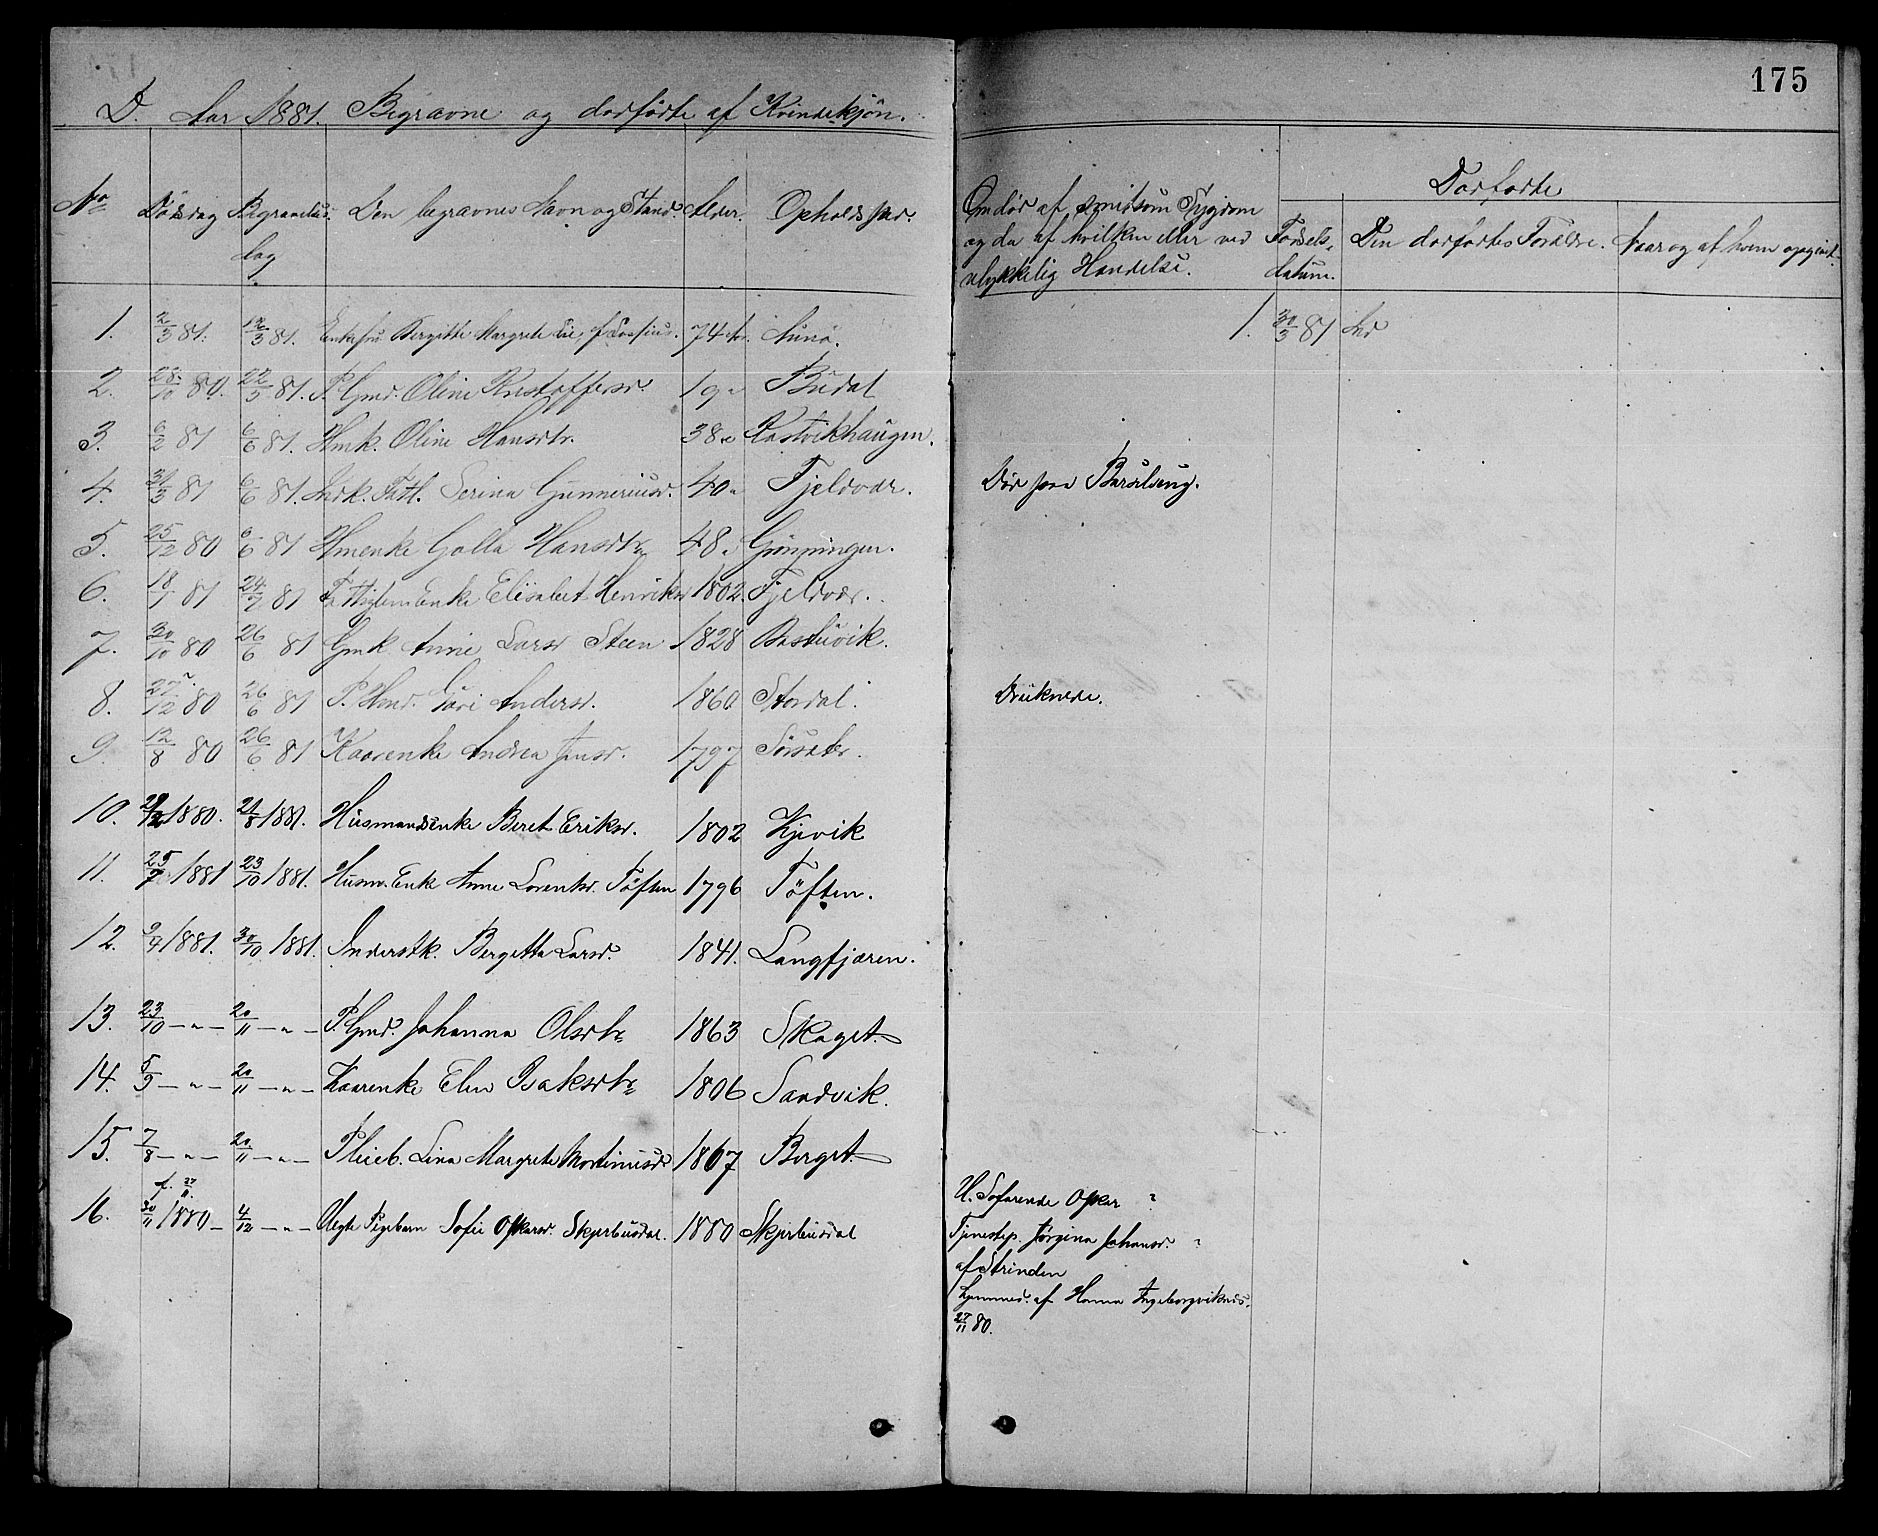 175
D. Aar 1881. Begravne og dødfødte af Kvindekjøn.
No Dødsdag Begravelsesdag. Den begravnes Navn og Stand Alder. Opholdssted.
Om død af smitsom Sygdom og da af hvilken eller ved ulykkelig Hændelse.
Dødfødte
Fødselsdatum. Den dødfødtes Forældre. Naar og af hvem opgivet.
1. 2/3 81. 12/3 81. Enkefru Bergitte Margrete 74 Aar.
1. 30/3 81
2. 28/10 80. 22/5 81. P. Gmd. Oline Kristoffersd. 19 " Budal
3. 6/2 81 6/6 81. Hmk. Oline Hansdtr. 38 "
4. 31/3 81 6/6 81. Indk. Fattl. Serina Gunneriusd. 40 " Fjeldvær. Død paa Barselseng.
5. 25/12 80 6/6 81 Hmenke Golla Hansdtr 48 "
6. 18/1 81 24/7 81 Fattiglem Enke Elisabet Henriksd 1802. Fjeldvær.
7. 30/10 80 26/6 81 Gmk. Anne Larsd Steen 1828 Bastuvik.
8. 27/12 80 26/6 81 P. Hmd. Guri Andersd. 1860 Stordal. Druknede.
9. 12/8 80 26/6 81 Kaarenke Andrea Jensd. 1797
10. 1880. 21/8 1881. Husmandsenke Beret Eriksd. 1802 Kjevik
11. 25/7 1881 23/10 1881. Husm. Enke Anne Lorentsd. Tøften 1796 Tøften.
12. 9/4 1881. 30/10 1881. Inderstk. Bergetta Larsd. 1841. Langfjæren.
13. 23/10 — " — 20/11 — " — P. Gmd. Johanna Olsdtr 1863 Skaget.
14. 5/9 — " — 20/11 — " — Kaarenke Elen Isaksdtr 1806 Sandvik.
15. 7/8 — " — 20/11 — " — Pleieb. Lina Margrete Mortinusd. 1867 Berget.
f. 27/11.
16. 30/11 1880 — 4/12 — " — Uegte Pigebarn Sofie Oskarsd. Skjerbusdal. 1880 Skjerbusdal
U. Søfarende Oskar ?
Tjenestep. Jørgina Johansd. ?
af Strinden
Hjemmed. af Hanna Ingeborgvik
27/11 80.